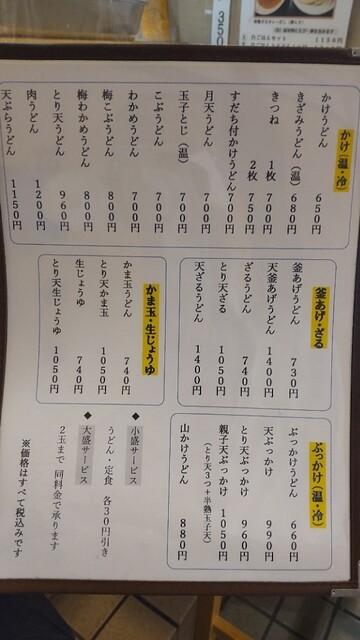 かけ(温・冷)
かけうどん 650円
きざみうどん(温) 680円
きつね 1枚 700円
2枚 750円
すだち付かけうどん 700円
月天うどん 700円
玉子とじ(温) 700円
こぶうどん 700円
わかめうどん 700円
梅こぶうどん 800円
梅わかめうどん 800円
とり天うどん 960円
肉うどん 1200円
天ぷらうどん 1150円
釜あげ・ざる
釜あげうどん 730円
天釜あげうどん 1400円
ざるうどん 740円
とり天ざる 1050円
天ざるうどん 1400円
かま玉・生じょうゆ
かま玉うどん 740円
とり天かま玉 1050円
生じょうゆ 740円
とり天生じょうゆ 1050円
ぶっかけ(温・冷)
ぶっかけうどん 660円
天ぶっかけ 990円
とり天ぶっかけ 960円
親子天ぶっかけ 1050円
(とり天3つ+半熟玉子天)
山かけうどん 880円
◆小盛サービス
うどん・定食 各30円引き
◆大盛サービス
2玉まで 同料金で承ります
※価格はすべて税込みです